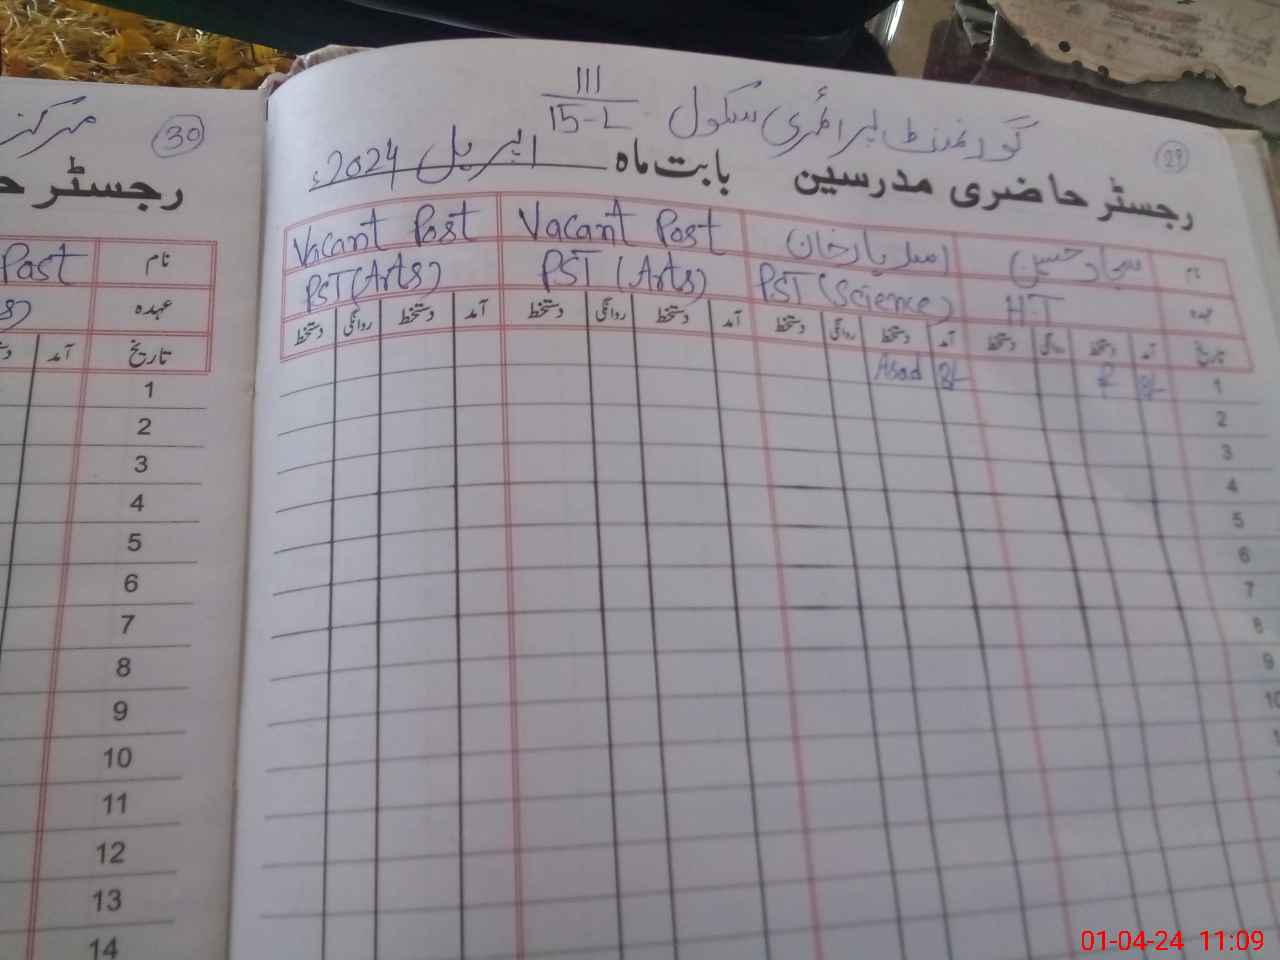 گورنمنٹ پرائمری سکول 111/15-L
29
رجسٹر حاضری مدرسین بابت ماہ اپریل 2024ء
نام سجاد حسین اسد یار خان Vacant Post Vacant Post
عہدہ H.T PST (Science) PST (Arts) PST (Arts)
تاریخ آمد دستخط روانگی دستخط آمد دستخط روانگی دستخط آمد دستخط روانگی دستخط آمد دستخط روانگی دستخط
1 Asad
2
3
4
5
6
7
8
9
10
30
مرکز
رجسٹر حا
نام Post
عہدہ s)
تاریخ آمد
1
2
3
4
5
6
7
8
9
10
11
12
13
14
01-04-24 11:09